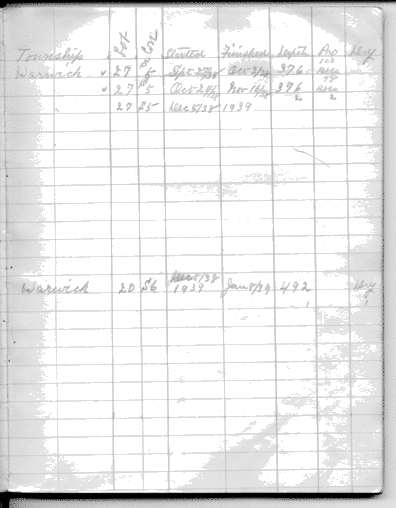 Township Lot Con Started Finished Depth Pro Dry
Warwick ✓ 27 5 Sept 27/38 Oct 3/38 376
✓ 27 5 Oct 24/38 Nov 16/38 376
2 2
27 S5 Dec 5/38 1939
Dec 5/38
Warwick 20 S6 1939 Jan 8/39 492 Dry
1 1